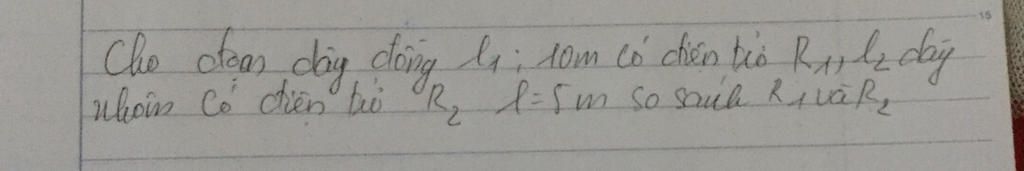 15
Cho đoạn dây đồng l1; 10m có điện trở R1, l2 dây
nhôm có điện trở R2 l = 5m so sánh R1 và R2